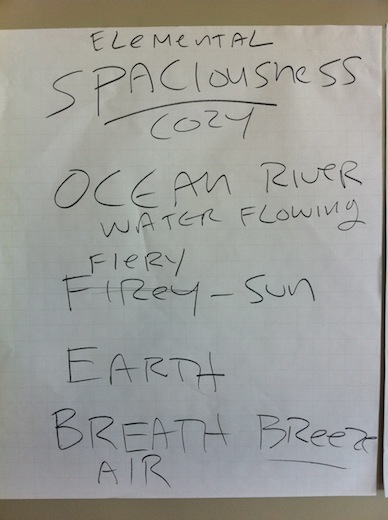 ELEMENTAL
SPACIOUSNESS
COZY
OCEAN RIVER
WATER FLOWING
FIERY
FIREY - SUN
EARTH
BREATH BREEZE
AIR